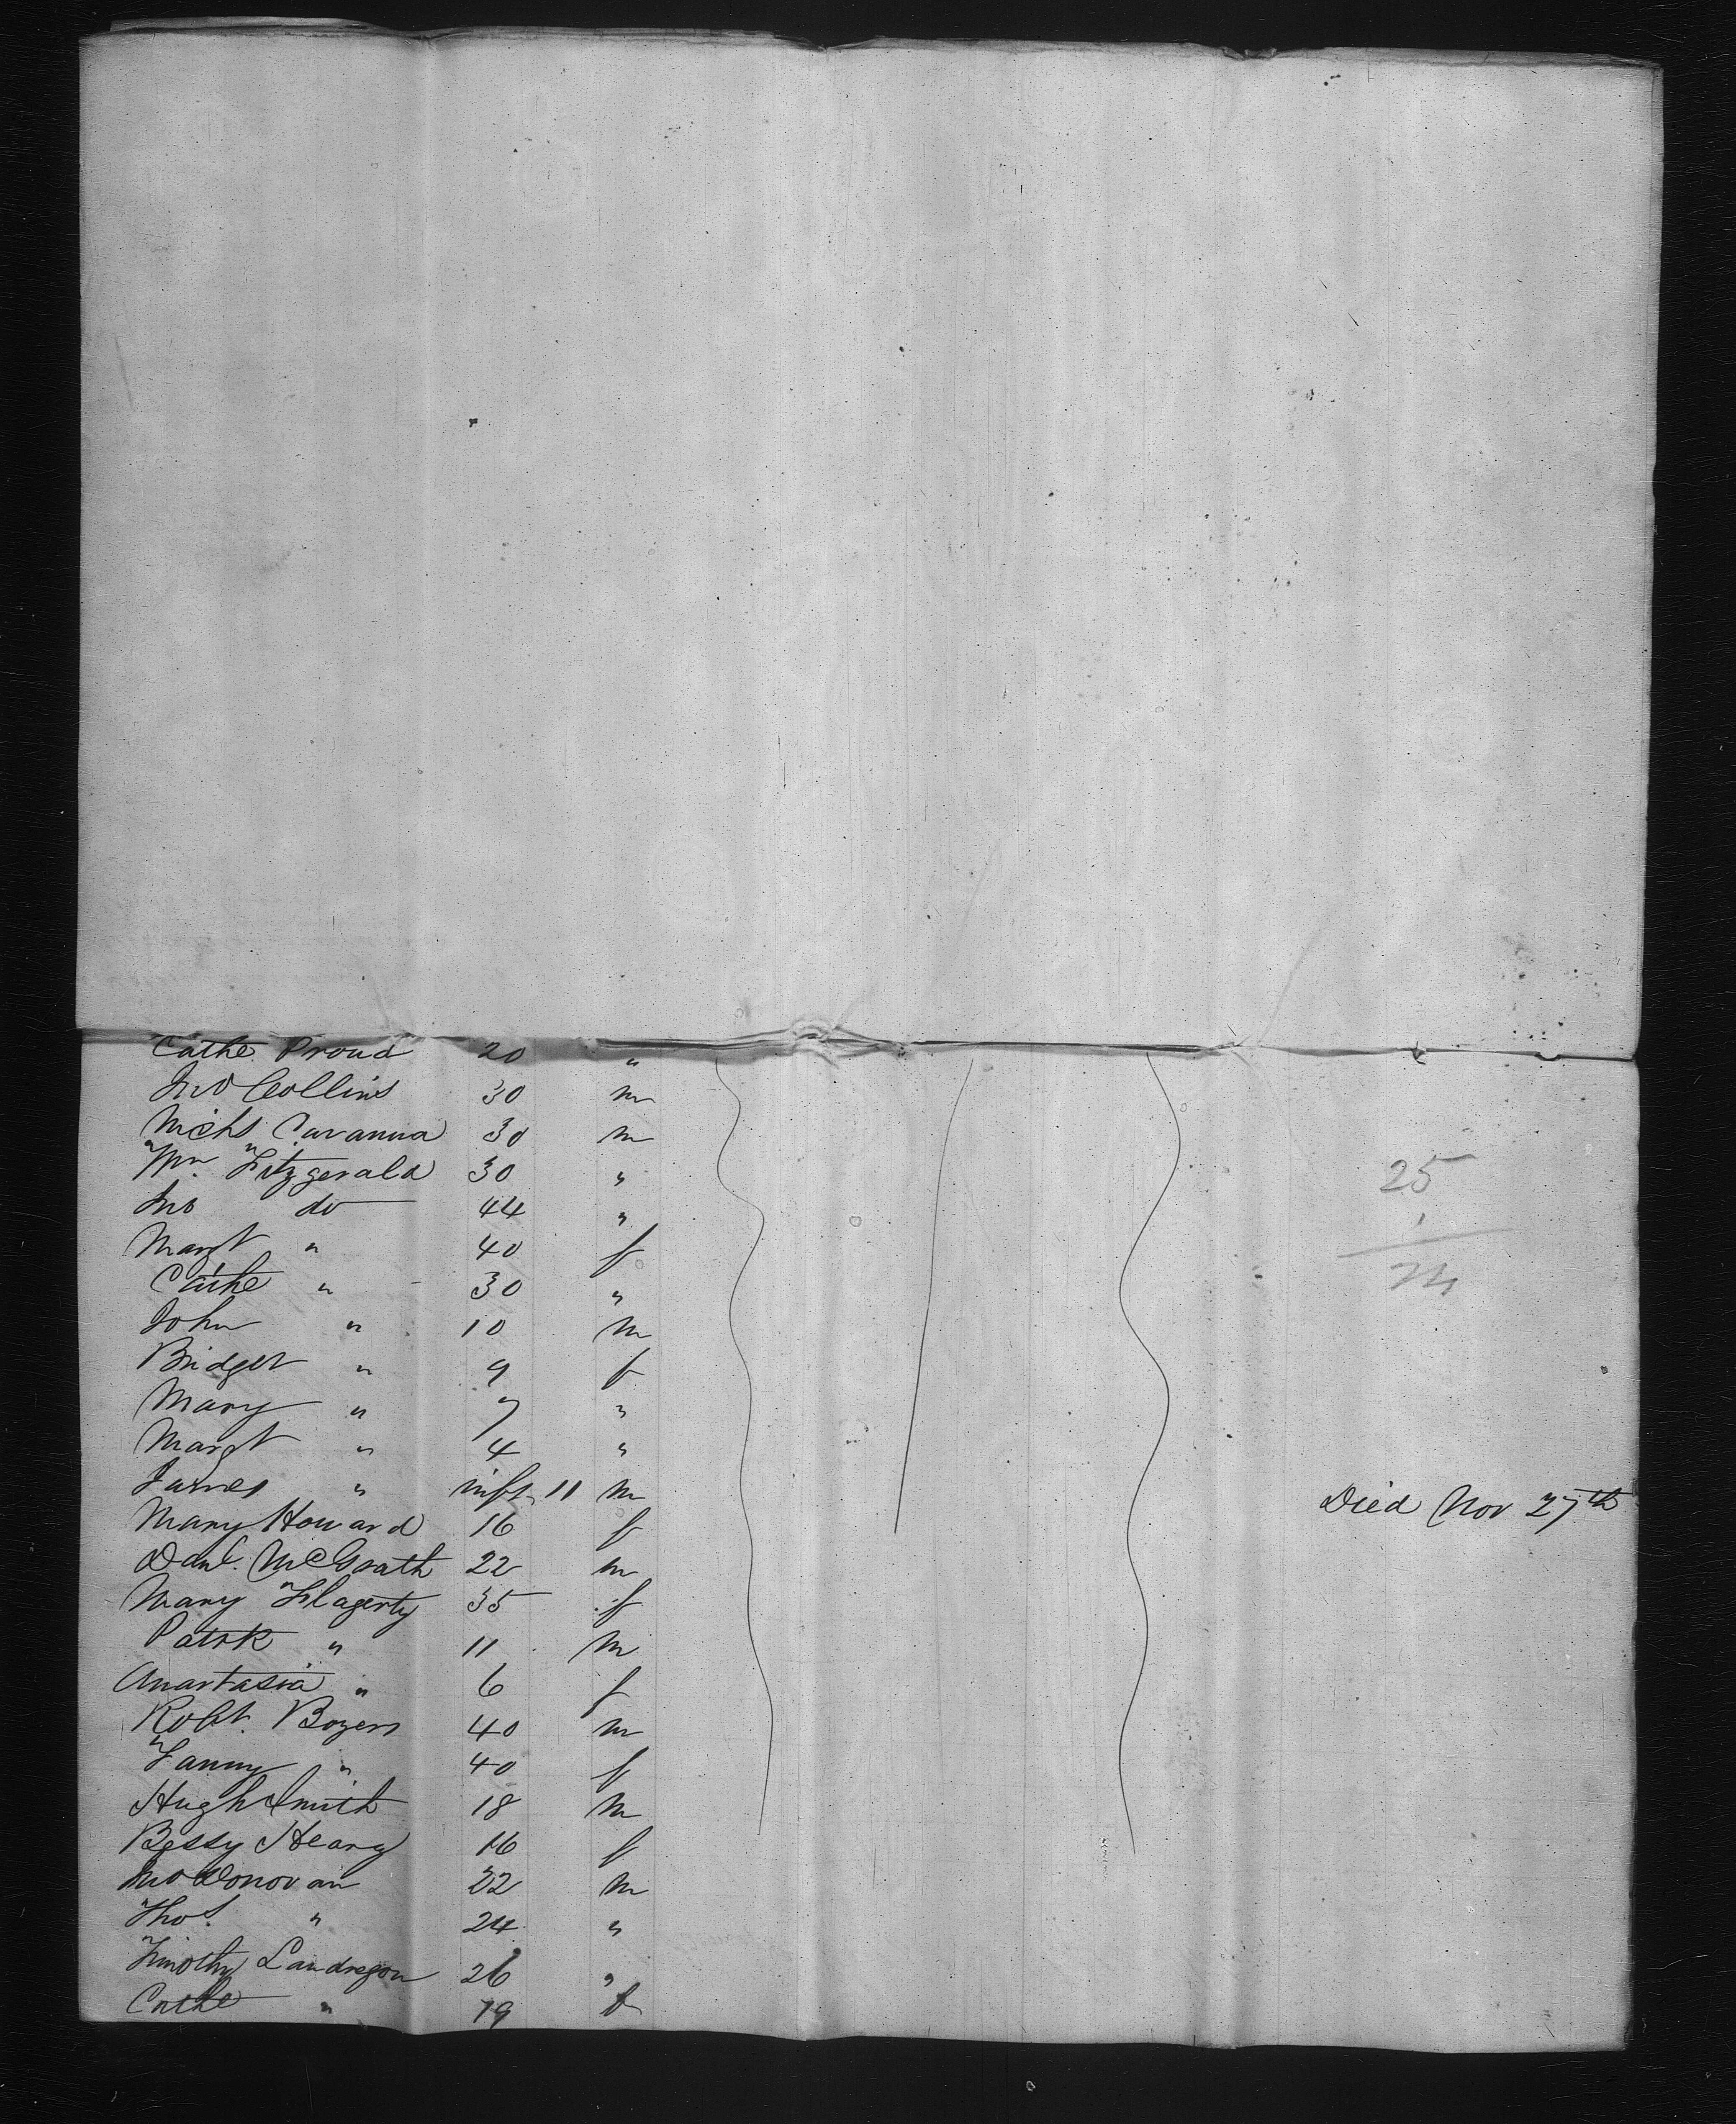 Cathe Proud 20 "
Jno Collins 30 m
Nichs Cavanna 30 m
Wm Fitzgerald 30 "
Jno do 44 "
Margt " 40 f
Cathe " 30 "
John " 10 m
Bridget " 9 f
Mary " 7 "
Margt " 4 "
James " inft 11 m Died Nov 27th
Mary Howard 16 f
Danl. McGrath 22 m
Mary Flagerty 35 f
Patrk " 11 m
Anastasia " 6 f
Robt. Boyers 40 m
Fanny " 40 f
Hugh Smith 18 m
Bessy Heary 16 f
Jno Donovan 22 m
Thos. " 24 "
Timothy Landregon 26 "
Cathe " 19 f
25
1